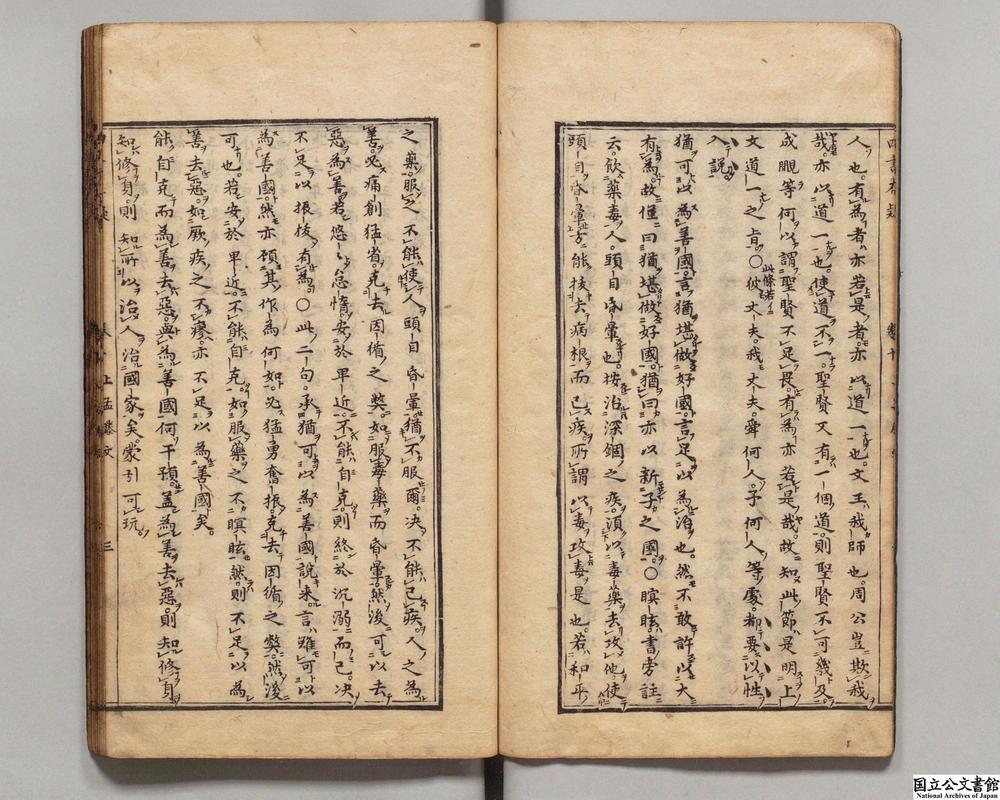 人也。有爲者亦若是者。亦以道一也。文王我師也。周公豈欺我
哉。亦以道一也。使道不一。聖賢又有一個道。則聖賢不可幾及。
成覸等何以謂聖賢不足畏。有爲亦若是哉。故知此節是明上
文道一之旨。○彼丈夫。我丈夫。舜何人。予何人等處。都要以性
此條若
入說
猶可以爲善國。言猶堪做好國。言足以爲治也。然不敢許以大
有爲。故僅曰猶堪做好國。猶曰亦以新子之國。○瞑眩。書旁註
云。飲藥毒人。頭目昏暈也。按治深錮之疾。須以毒藥去攻他。使
頭目昏暈。方能拔去病根而已疾。所謂以毒攻毒是也。若和平
之藥。服之不能使人頭目昏暈。猶不服爾。决不能已疾。人之爲
善。必痛創猛省。克去因循之弊。如服毒藥而昏暈。然後可以去
惡爲善。若悠悠怠惰。安於卑近。不能自克。則終於沉溺而已。决
不足以振拔有爲。○此二句。承猶可以爲善國說來。言雖可以
爲善國。然亦顧其作爲何如。必猛勇奮振。克去因循之弊。然後
可也。若安於卑近。不能自克。如服藥之不瞑眩然。則不足以爲
善去惡。如厥疾之不瘳。亦不足以爲善國矣。
能自克而爲善去惡。與爲善國何干預。蓋爲善去惡。則知修身。
知修身。則知所以治人。治國家矣。蒙引可玩。
三
国立公文書館
National Archives of Japan